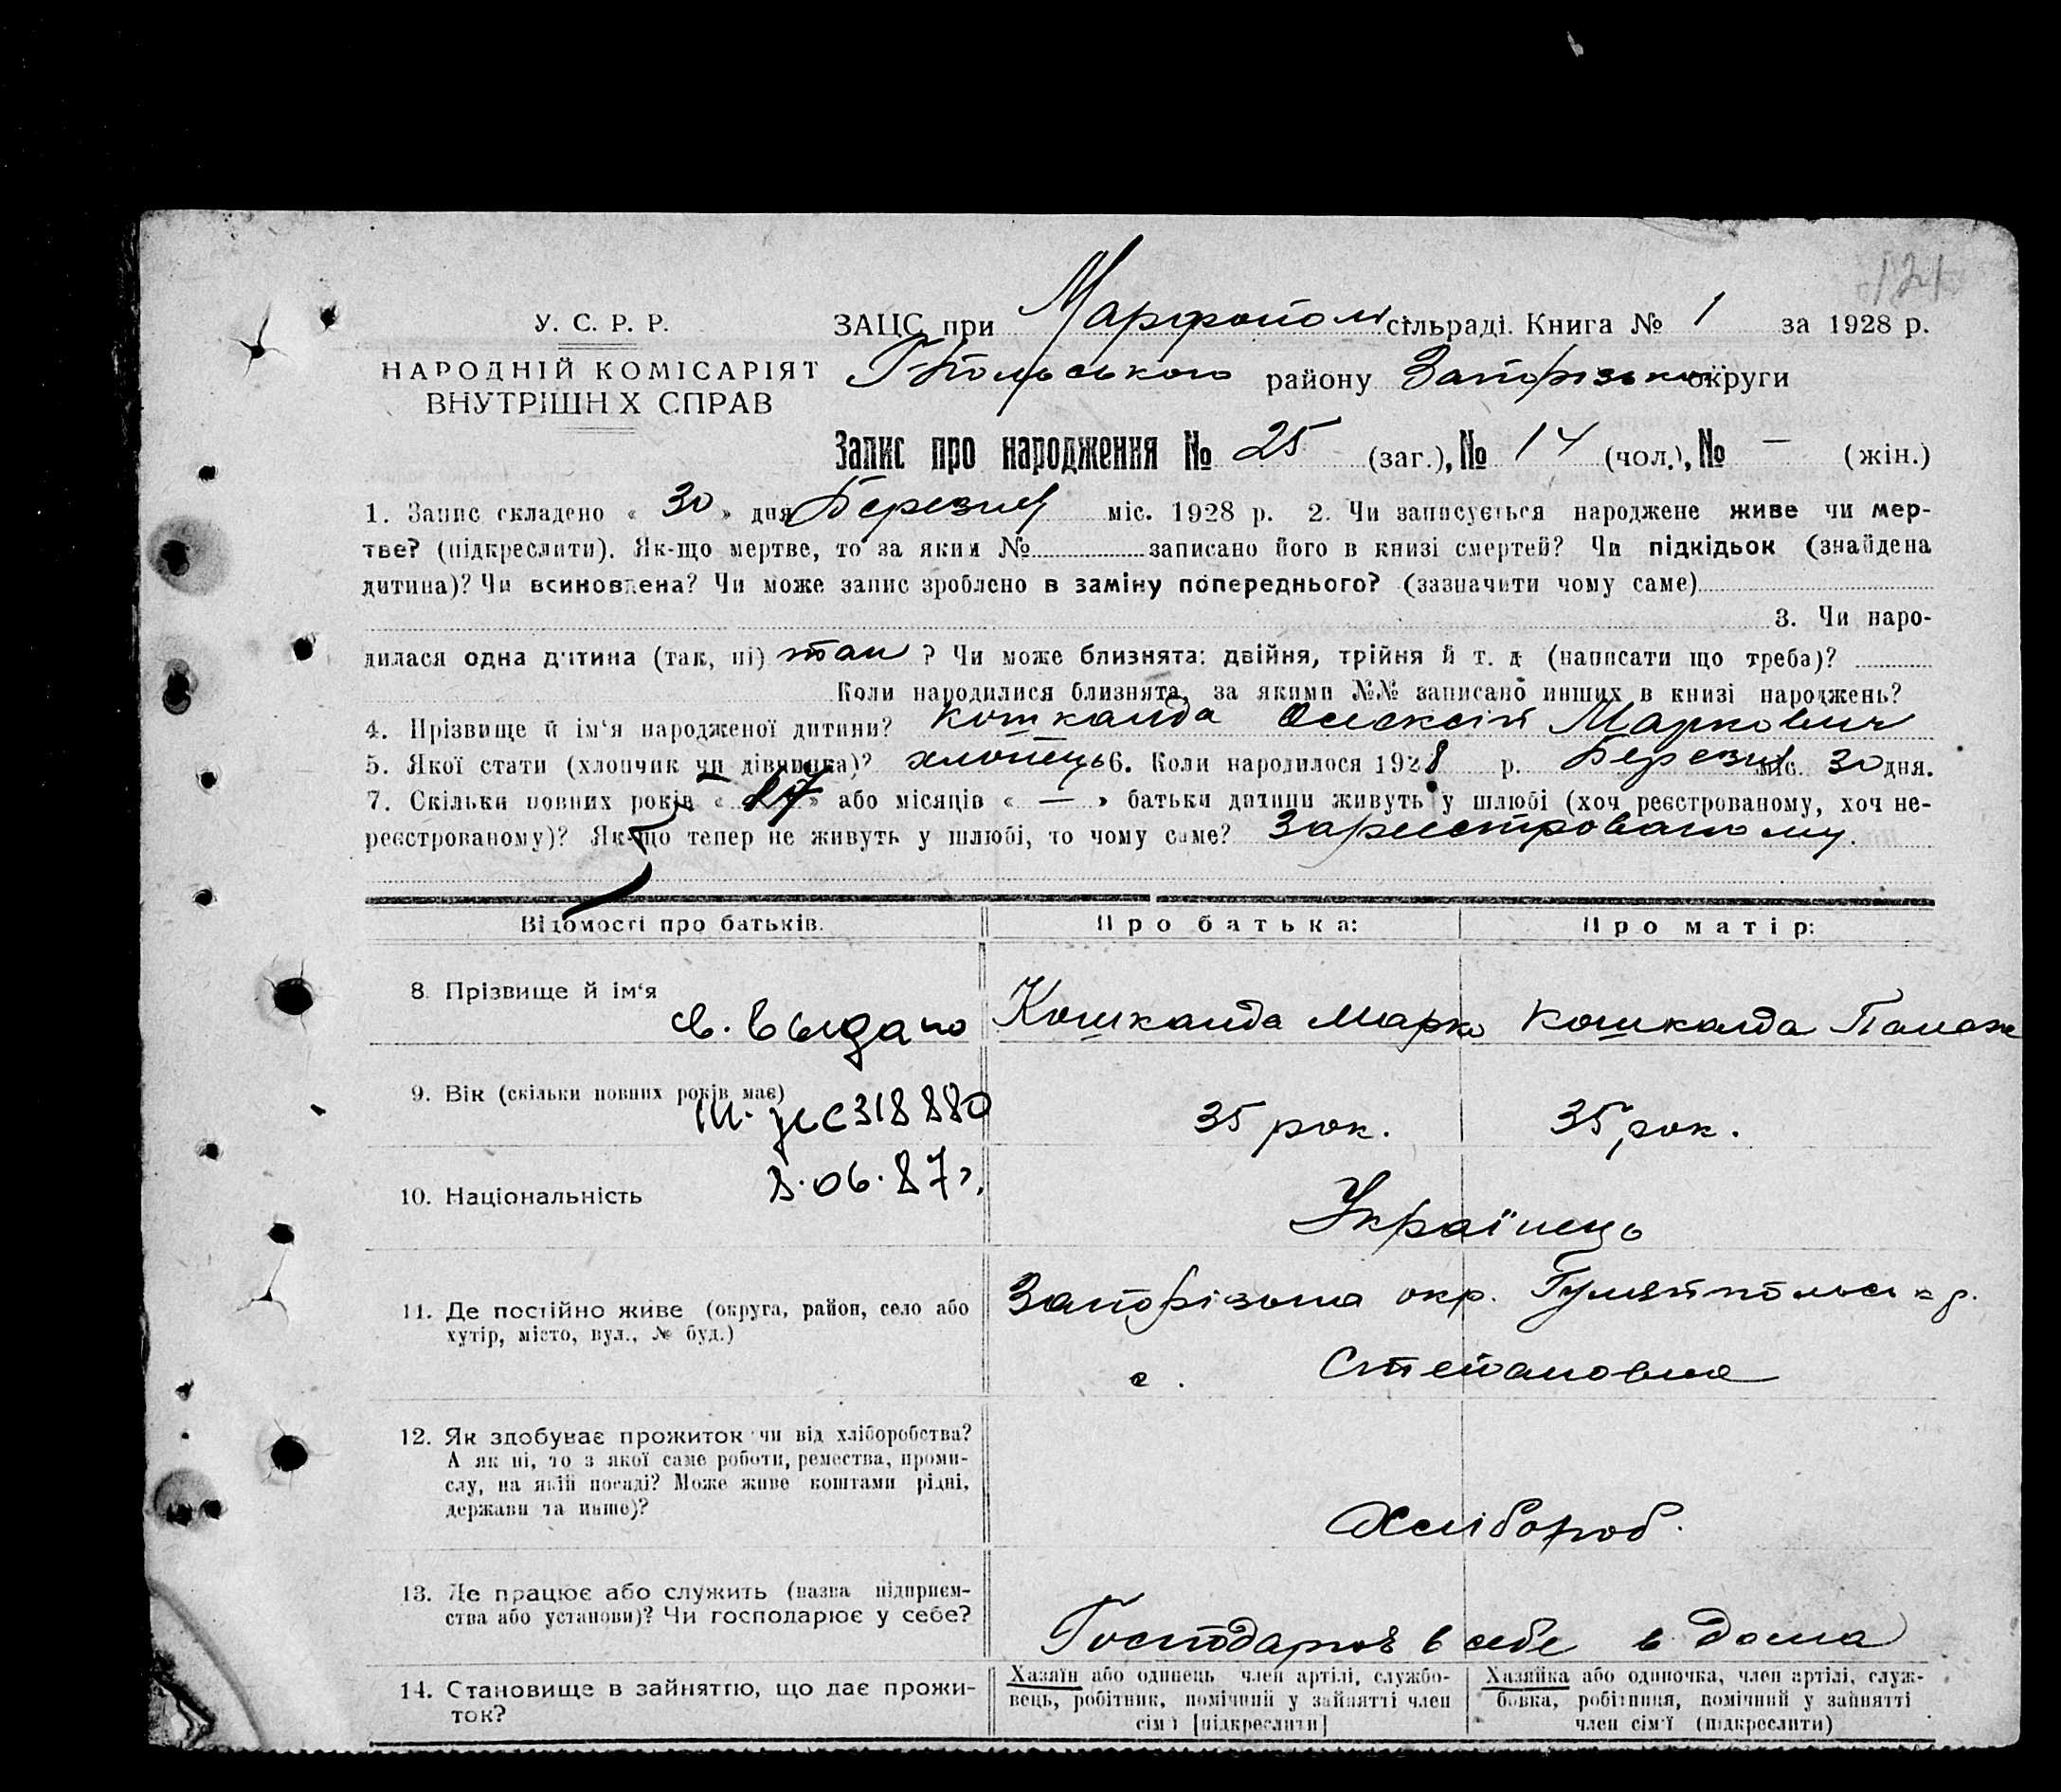 121
У. С. Р. Р.
НАРОДНІЙ КОМІСАРІЯТ
ВНУТРІШН Х СПРАВ
ЗАЦС при Марфопол сільраді. Книга № 1 за 1928 р.
Гпольського району Запорізької округи
Запис про народження № 25 (заг.), № 14 (чол.), № — (жін.)
1. Запис складено « 30 » дня Березня міс. 1928 р. 2. Чи записується народжене живе чи мер-
тве? (підкреслити). Як-що мертве, то за яким № записано його в книзі смертей? Чи підкідьок (знайдена
дитина)? Чи всиновлена? Чи може запис зроблено в заміну попереднього? (зазначити чому саме)
3. Чи наро-
дилася одна дитина (так, ні) так ? Чи може близнята: двійня, трійня й т. д (написати що треба)?
Коли народилися близнята, за якими №№ записано инших в книзі народжень?
4. Прізвище й ім‘я народженої дитини? Кошкалда Олексій Маркович
5. Якої стати (хлопчик чи дівчинка)? хлопець 6. Коли народилося 1928 р. Березня міс. 30 дня.
7. Скільки повних років « 17 » або місяців « — » батьки дитини живуть у шлюбі (хоч реєстрованому, хоч не-
реєстрованому)? Як-що тепер не живуть у шлюбі, то чому саме? Зареєстрованому.
Відомості про батьків. Про батька: Про матір:
8. Прізвище й ім‘я Кошкалда Марко Кошкалда Палаж
св. выдано
9. Вік (скільки повних років має) 35 рок. 35 рок.
318880
10. Національність 8.06.87г. Українець
11. Де постійно живе (округа, район, село або Запорізька окр. Гуляйпольськ р.
хутір, місто, вул., № буд.) с. Степановка
12. Як здобуває прожиток чи від хліборобства?
А як ні, то з якої саме роботи, ремества, проми-
слу, на якій посаді? Може живе коштами рідні,
держави та инше)? Хлібороб.
13. Де працює або служить (назва підприєм-
ства або установи)? Чи господарює у себе? Господарює в себе в дома
14. Становище в зайняттю, що дає прожи-
ток?
Хазяїн або одинець член артілі, службо-
вець, робітник, помічний у зайнятті член
сім‘ї [підкреслити]
Хазяйка або одиночка, член артілі, служ-
бовка, робітниця, помічний у зайнятті
член сім‘ї (підкреслити)